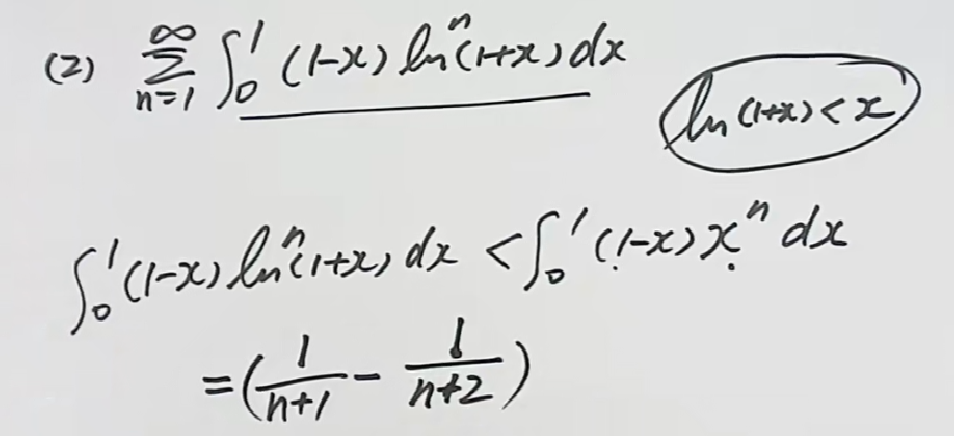 (2) $\sum_{n=1}^{\infty} \int_0^1 (1-x) \ln^n(1+x) dx$
$\ln(1+x) < x$
$\int_0^1 (1-x) \ln^n(1+x) dx < \int_0^1 (1-x) x^n dx$
$= \left( \frac{1}{n+1} - \frac{1}{n+2} \right)$